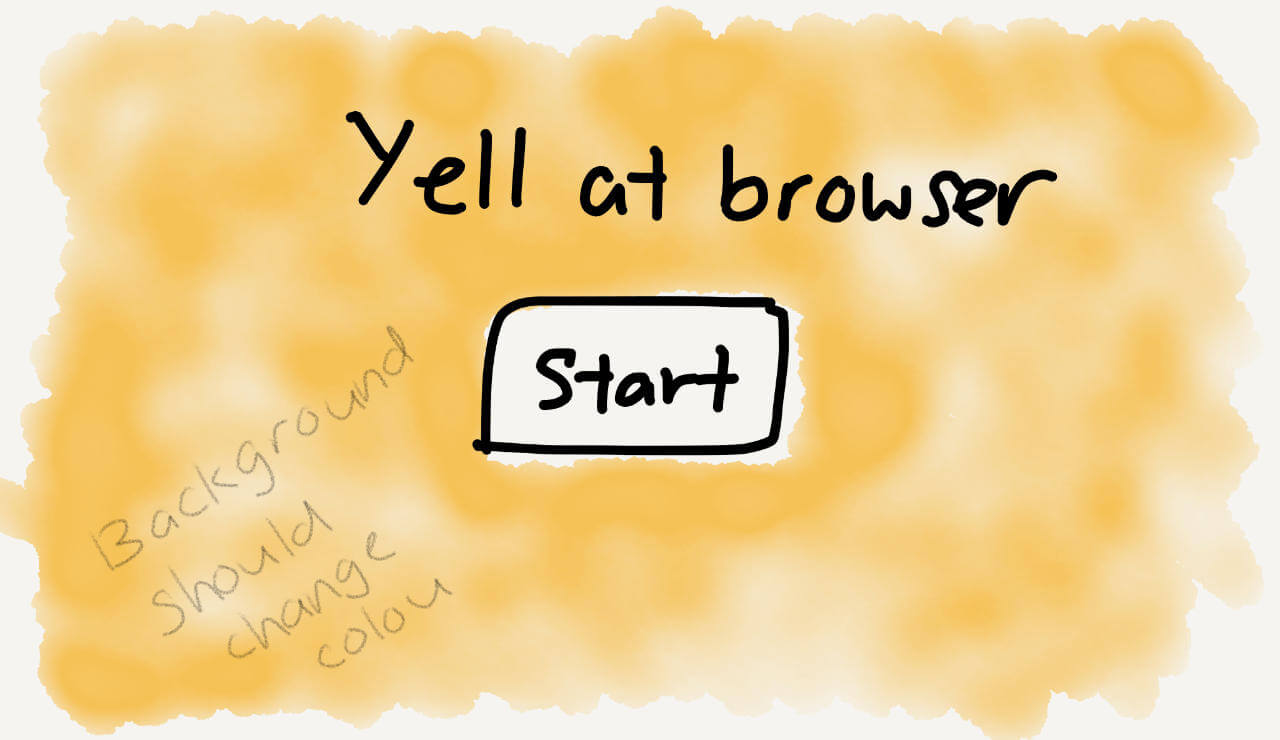 Yell at browser
Start
Background
should
change
colou